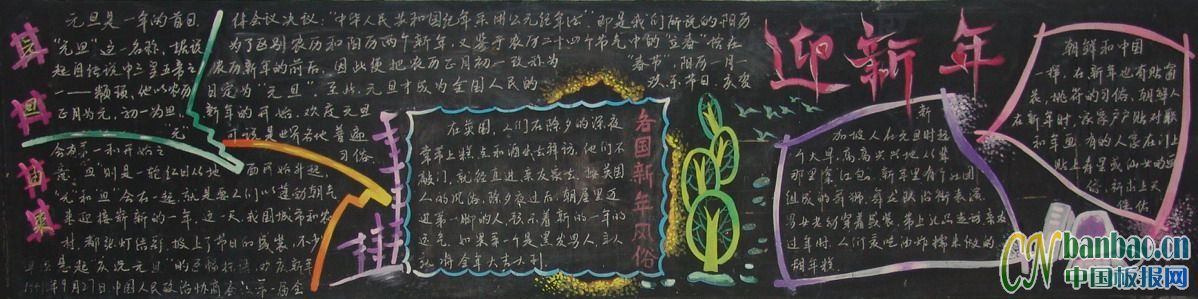 元旦由来
元旦是一年的首日，
"元旦"这一名称，据说
起自传说中三皇五帝之
一——颛顼，他以农历
正月为元，初一为旦。
元"
意，"旦"则是一轮红日从地
元和"旦"合在一起，就是要人们以蓬勃朝气
来迎接崭新的一年。这一天，我国城市和农
村，都张灯结彩，披上了节日的盛装，不少
悬起"庆祝元旦"的
1949年9月27日中国人民政治协商会议第一届全
体会议决议："中华人民共和国纪年采用公元纪年法"，即是我们所说的阳历
为了区别农历和阳历两个新年，又鉴于农历二十四个节气中的"立春"恰在
农历新年的前后，因此便把农历正月初一改称为"春节"，阳历一月一
日定为"元旦"，至此，元旦才成为全国人民的欢乐节日。
新年的开始，欢度元旦
可说是世界各地普遍
习俗
面冉冉升起。
各国新年风俗
在英国，人们在除夕的深夜
常带上糕点和酒出去拜访，他们不
敲门，就径直进亲友家去。按英国
人的风俗，除夕夜过后，朝屋里迈
进第一脚的人，预示着新的一年的
运气。如果第一个是黑发男人，主人
家将全年大吉大利。
迎新年
新
加坡人在元旦时起
个大早，高高兴兴地从集
那里拿红包。每年都有个团
组成的狮队、舞龙队沿街表演，
男女老幼穿着盛装，带上礼品走访亲友
过年时，人们爱吃油炸糯米做的
甜年糕。
朝鲜和中国
一样，在新年也有贴窗
花、桃符的习俗，朝鲜人
在新年时，家家户户贴对联
和年画，有的人家在门上
贴上寿星或仙女的画
像，祈求上天
保佑
CN banbao.cn
中国板报网